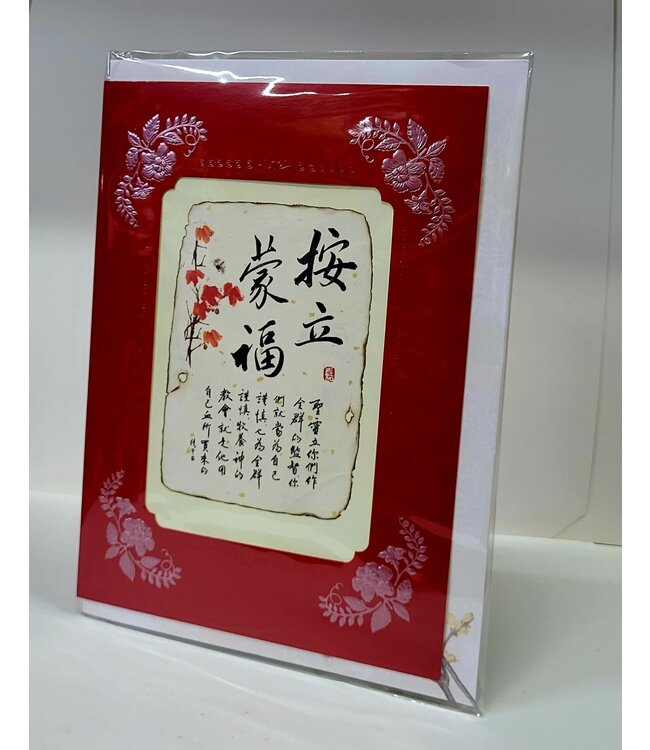 按立
蒙福
聖靈立你們作
全群的監督你
們就當為自己
謹慎也為全群
謹慎牧養神的
教會就是他用
自己血所買來的